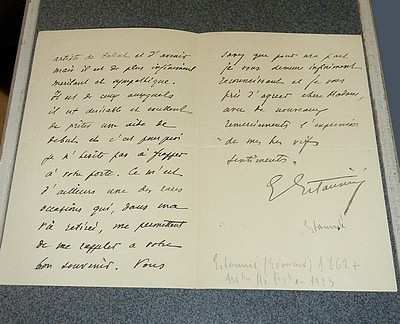 artiste de talent et d'avenir
mais il est de plus infiniment
méritant et sympathique.
Il est de ceux auxquels
il est désirable et excellent
de prêter une aide de
début et c'est pourquoi
je n'hésite pas à frapper
à votre porte. Ce m'est
d'ailleurs une des rares
occasions qui, dans ma
vie retirée, me permettent
de me rappeler à votre
bon souvenir. Vous
savez que pour ma part
je vous demeure infiniment
reconnaissant et je vous
prie d'agréer chère Madame,
avec de nouveaux
remerciements l'expression
de mes très vifs
sentiments.
E Estaunié
Estaunié
Estaunié (Edouard) 1862 +
en 1923